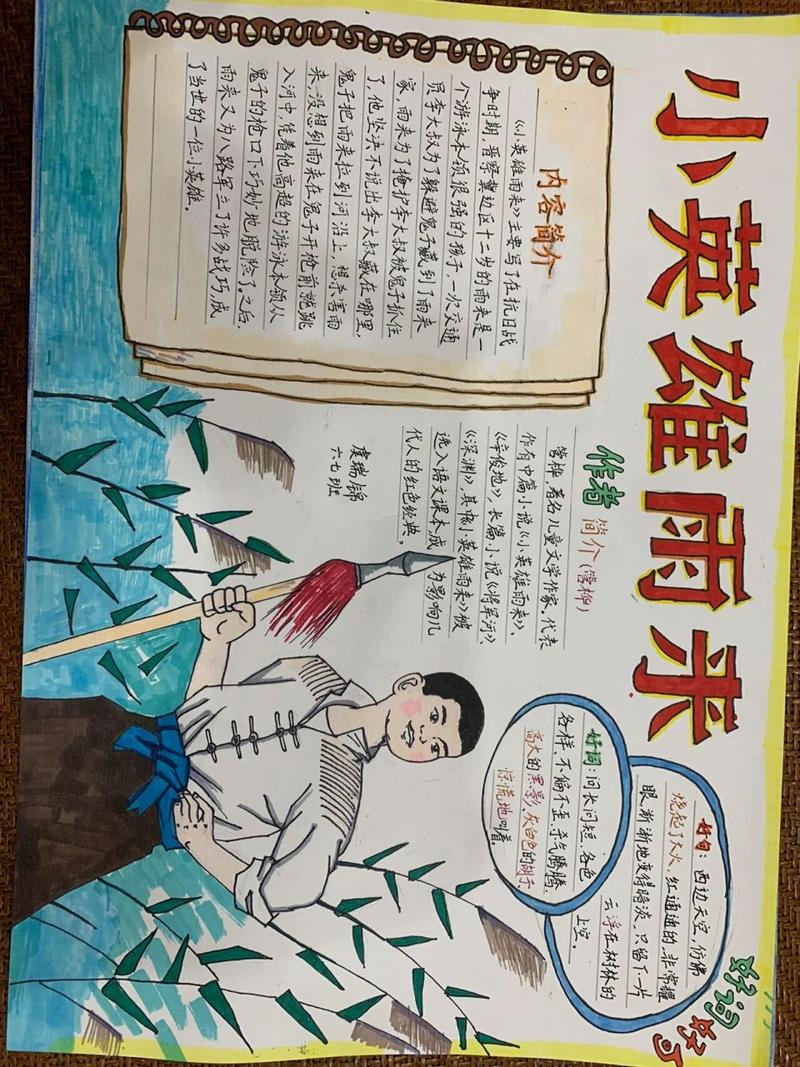 小英雄雨来
内容简介
《小英雄雨来》主要写了在抗日战
争时期，晋察冀边区十二岁的雨来是一
个游泳本领很强的孩子，一次交通
员李大叔为了躲避鬼子藏到了雨来
家，雨来为了掩护李大叔被鬼子抓住
了，他坚决不说出李大叔藏在哪里，
鬼子把雨来拉到河沿上，想杀害雨
来，没想到雨来在鬼子开枪前就跳
入河中，凭着他高超的游泳本领从
鬼子的枪口下巧妙地脱险了。之后，
雨来又为八路军立了许多战巧，成
了当世的一位小英雄。
作者简介（管桦）
管桦，著名儿童文学作家、代表
作有中篇小说《小英雄雨来》、
《辛俊地》、长篇小说《将军河》、
《深渊》，其中《小英雄雨来》被
选入语文课本，成为影响几
代人的红色经典。
虞瑞锦
六七班
好词：问长问短、各色
各样、不偏不歪、杀气腾腾、
高大的黑影、灰白色的胡子、
惊慌地叫着。
好句：西边天空，仿佛
烧起了大火，红通通的，非常耀
眼，渐渐地变得暗淡，只留下一片
云浮在树林的
上空。
好词好句